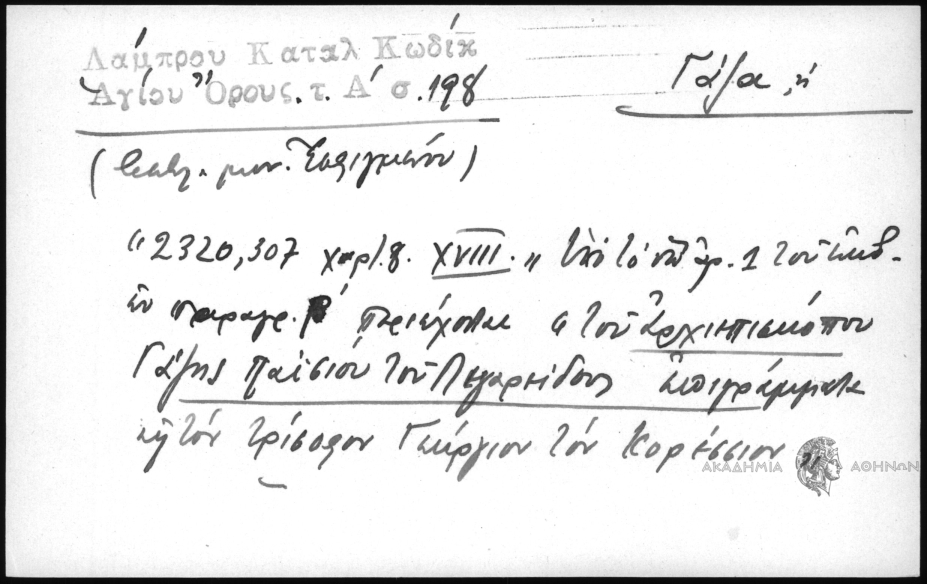 Λάμπρου Καταλ Κωδίκ
Ἁγίου Ὄρους. τ. Α΄ σ. 198
Γάζα, ἡ
μον. Ἐσφιγμένου)
"2320,307 χαρτ. 8. XVIII." Ὑπὸ τὸ ὑπ' ἀρ. 1 τοῦ
παραγρ. β΄ περιέχονται "τοῦ Ἀρχιεπισκόπου
Γάζης Παϊσίου τοῦ Λιγαρείδους ἐπιγράμματα
εἰς τὸν τρίσοφον Γεώργιον τὸν Κορέσσιον"
ΑΚΑΔΗΜΙΑ ΑΘΗΝΩΝ